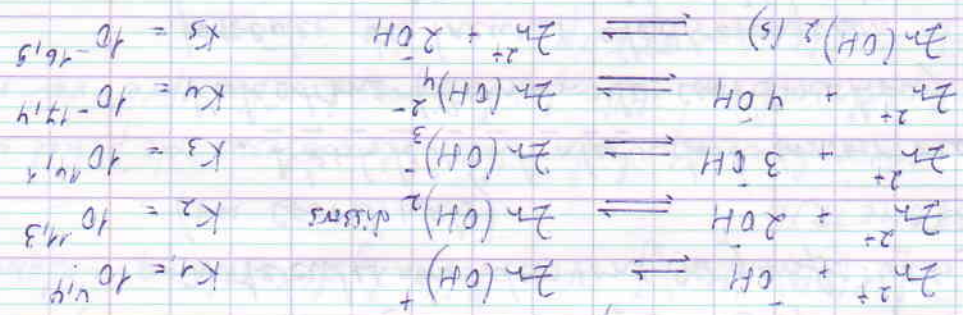 Zn²⁺ + OH⁻ ⇌ Zn(OH)⁺ K1 = 10^4,4
Zn²⁺ + 2OH⁻ ⇌ Zn(OH)2 dissous K2 = 10^11,3
Zn²⁺ + 3OH⁻ ⇌ Zn(OH)3⁻ K3 = 10^14,1
Zn²⁺ + 4OH⁻ ⇌ Zn(OH)4²⁻ K4 = 10^-17,4
Zn(OH)2 (s) ⇌ Zn²⁺ + 2OH⁻ Ks = 10^-16,5